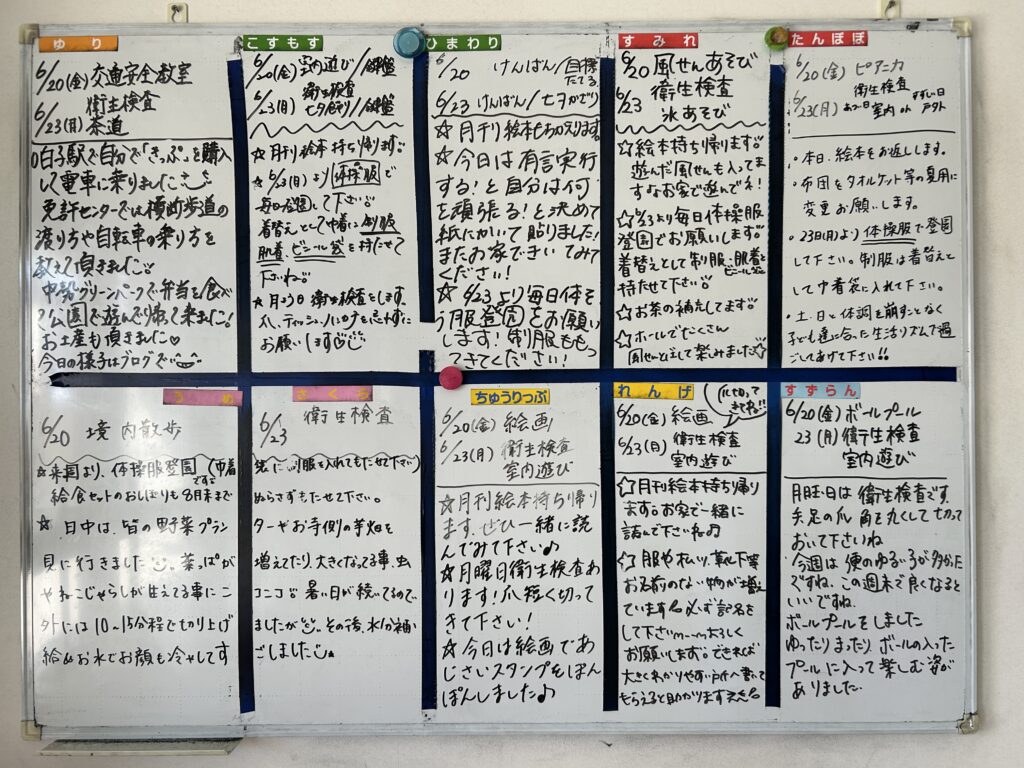 ゆり
6/20(金) 交通安全教室
衛生検査
6/23(月) 茶道
○白子駅で自分で「きっぷ」を購入
して電車に乗りました
免許センターでは横断歩道の
渡り方や自転車の乗り方を
教えて頂きました
中勢グリーンパークで弁当を食べ
て公園で遊んで帰って来ました!
お土産も頂きました♡
今日の様子はブログで
こすもす
6/20(金) 室内遊び/鍵盤
衛生検査
6/23(月) 七夕飾り/鍵盤
☆月刊絵本持ち帰ります。
☆6/23(月)より体操服で
毎日登園して下さい。
着替えとして巾着に制服
肌着、ビニール袋を持たせて
下さいね。
☆月よう日 衛生検査をします。
爪、ティッシュ、ハンカチを忘れずに
お願いします
ひまわり
6/20 けんばん/目標たてる
6/23 けんばん/七夕かざり
☆月刊絵本もちかえります。
☆今日は有言実行
する!と自分は何
を頑張る!と決めて
紙にかいて貼りました!
またお家できいてみて
ください!
☆6/23より毎日体そ
う服登園をお願い
します!制服ももっ
てきてください!
すみれ
6/20 風せんあそび
衛生検査
6/23 水あそび
☆絵本持ち帰ります。
遊んだ風せんも入ってま
すなお家で遊んでネ!
☆6/23より毎日体操服
登園でお願いします。
着替えとして制服、肌着と
ビニール袋
持たせて下さい。
☆お茶の補充してます。
☆ホールでたくさん
風せんとばして楽しみました☆
たんぽぽ
6/20(金) ピアニカ
衛生検査
6/23(月) あつい日 室内 or すずしい日 戸外
・本日、絵本をお返しします。
・布団をタオルケット等の夏用に
変更お願いします。
・23日(月)より体操服で登園
して下さい。制服は着替えと
して巾着袋に入れて下さい。
・土、日と体調を崩すことなく
子ども達に合った生活リズムで過
ごしてあげて下さい!!
うめ
6/20 境内散歩
☆来週より、体操服登園です。(巾着
給食セットのおしぼりも8月末まで
☆日中は、皆の野菜プラン
見に行きました 葉っぱが
やねこじゃらしが生えてる事にニ
外には10〜15分程で切り上げ
給&お水でお顔も冷やしてす
さくら
6/23 衛生検査
袋に制服を入れてもたせて下さい)
ぬらさずもたせて下さい。
ターやお寺側の芋畑を
増えてたり、大きくなってる事、虫
コニコ 暑い日が続いてるので
ましたが その後、水分補
ごしました
ちゅうりっぷ
6/20(金) 絵画
6/23(月) 衛生検査
室内遊び
☆月刊絵本持ち帰り
ます。ぜひ一緒に読
んでみて下さい♪
☆月曜日衛生検査あ
ります!爪短く切って
きて下さい!
☆今日は絵画であ
じさいスタンプをぽん
ぽんしました♪
れんげ
爪切って
きてね!!
6/20(金) 絵画
6/23(月) 衛生検査
室内遊び
☆月刊絵本持ち帰り
ます。お家で一緒に
読んで下さいね♪
☆服やパンツ、靴下等
お名前のない物が増え
ています 必ず記名を
して下さいm(_ _)mよろしく
お願いします。できれば
大きくわかりやすい所へ書いて
もらえると助かります
すずらん
6/20(金) ボールプール
23(月) 衛生検査
室内遊び
月曜日は衛生検査です。
手足の爪、角を丸くして切って
おいて下さいね
今週は便のゆるい子が多かった
ですね。この週末で良くなると
いいですね。
ボールプールをしました
ゆったりまったりボールの入った
プールに入って楽しむ姿が
ありました。